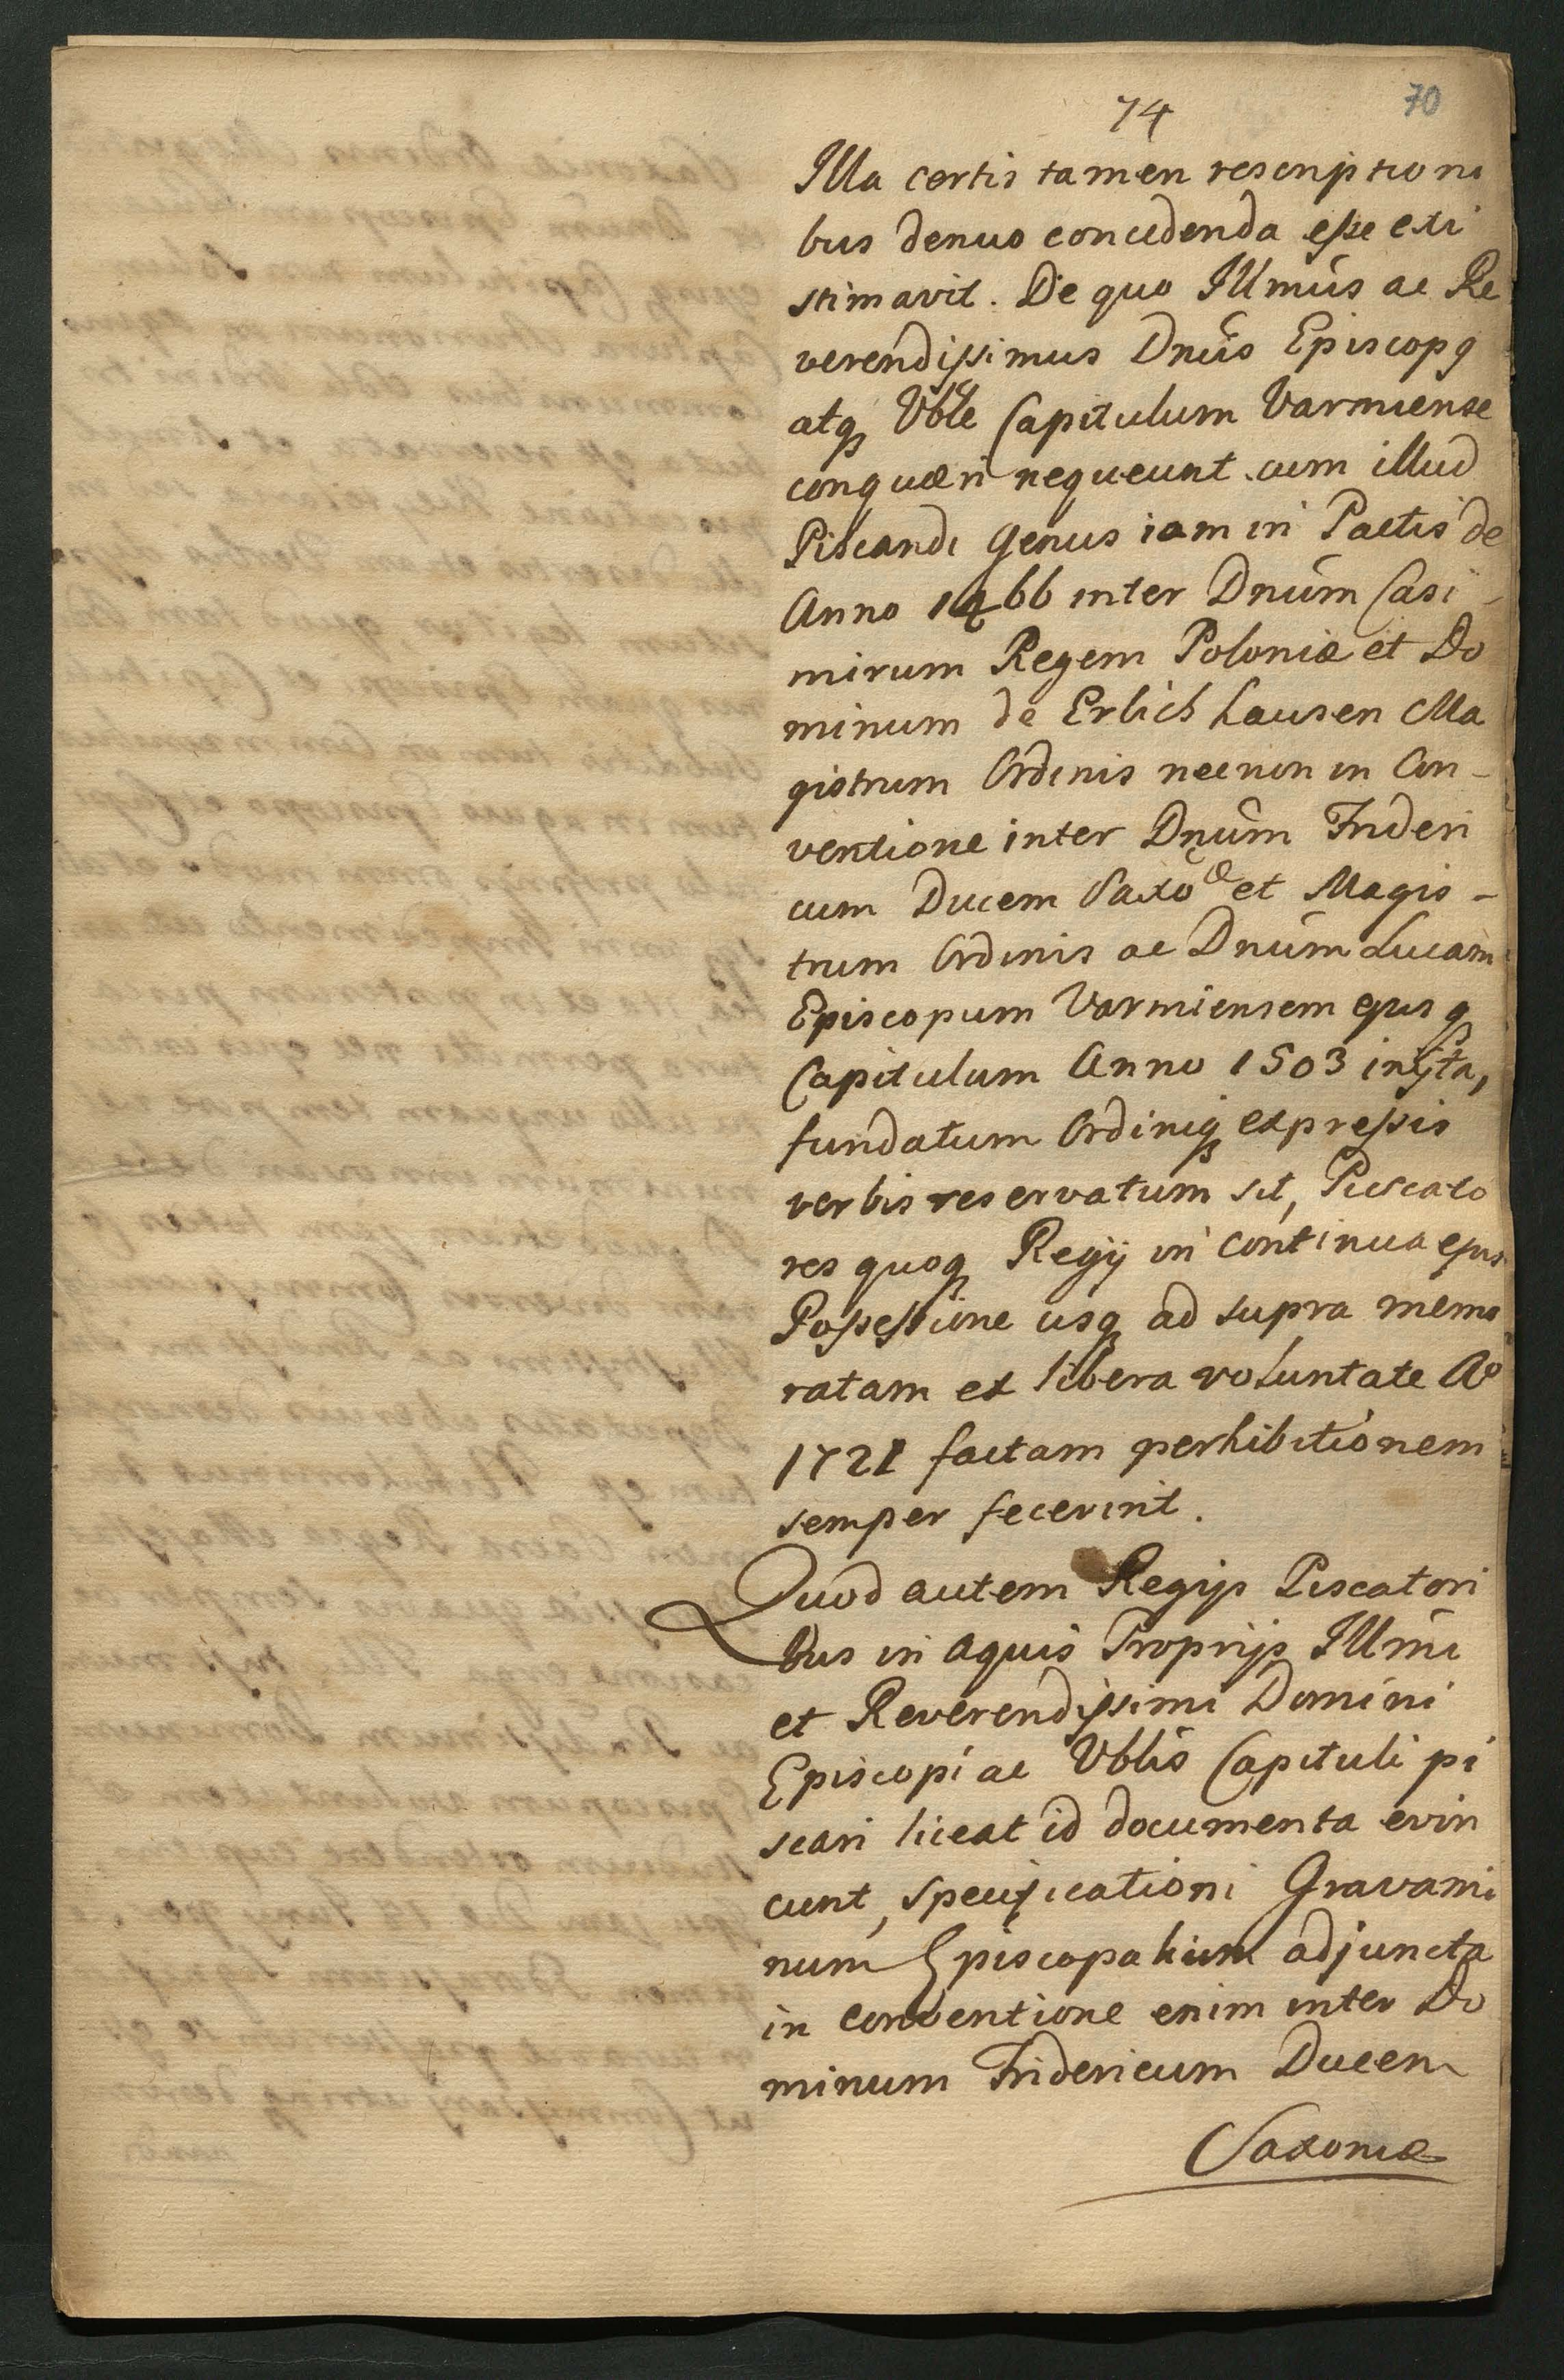 74
70
Illa certis tamen rescriptioni
bus denuo concedenda esse exi
stimavit. De quo Illmus ac Re
verendissimus Dnus Episcopq
atq Vble Capitulum Varmiense
conquæri nequeunt cum illud
Piscandi genus iam in Pactis de
Anno 1466 inter Dnum Casi-
mirum Regem Poloniæ et Do
minum de Erlichhausen Ma
gistrum Ordinis necnon in Con-
ventione inter Dnum Frideri
cum Ducem Saxoæ et Magis-
trum Ordinis ac Dnum Lucam
Episcopum Varmiensem ejusq
Capitulum Anno 1503 inijta,
fundatum Ordiniq expressis
verbis reservatum sit, Piscato
res quoq Regij in continua ejus
Possessione usq ad supra memo
ratam ex libera voluntate Ao
1721 factam perhibitionem
semper fecerint.
Quod autem Regijs Piscatori
bus in aquis Proprijs Illmi
et Reverendissimi Domini
Episcopi ac Vblis Capituli pi
scari liceat id documenta evin
cunt, specificationi Gravami
num Episcopalium adjuncta
in conventione enim inter Do
minum Fridericum Ducem
Saxoniæ